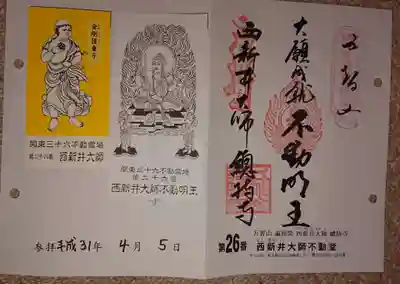 五智山
大願成就 不動明王
西新井大師 總持寺
五智山 遍照院 西新井大師 總持寺
第26番 西新井大師不動堂
関東三十六不動霊場
第二十六番 西新井大師
関東三十六不動霊場
第二十六番
西新井大師不動明王
参拝 平成31年 4月 5日